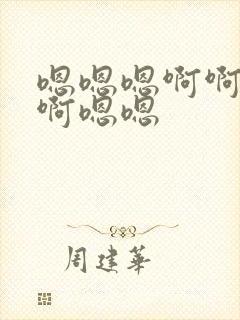 嗯嗯嗯啊啊
啊嗯嗯
周建华